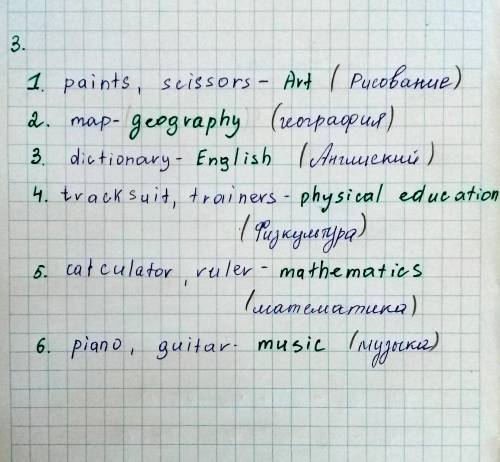 3.
1. paints, scissors - Art (Рисование)
2. map - geography (география)
3. dictionary - English (Английский)
4. tracksuit, trainers - physical education
(Физкультура)
5. calculator, ruler - mathematics
(математика)
6. piano, guitar - music (музыка)